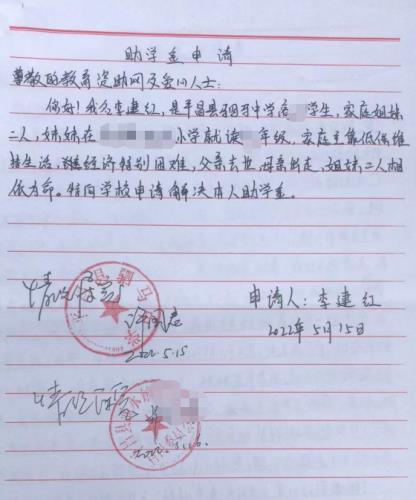 助学金申请
尊敬的教育资助网及爱心人士：
你好！我名李建红，是平昌县驷马中学高 学生，家庭姐妹
二人，妹妹在 小学就读 年级，家庭主靠低保维
持生活，经济特别困难，父亲去世母亲出走，姐妹二人相
依为命。特向学校申请解决本人助学金。
情况属实
申请人：李建红
2022年5月15日
2022.5.15
情况属实